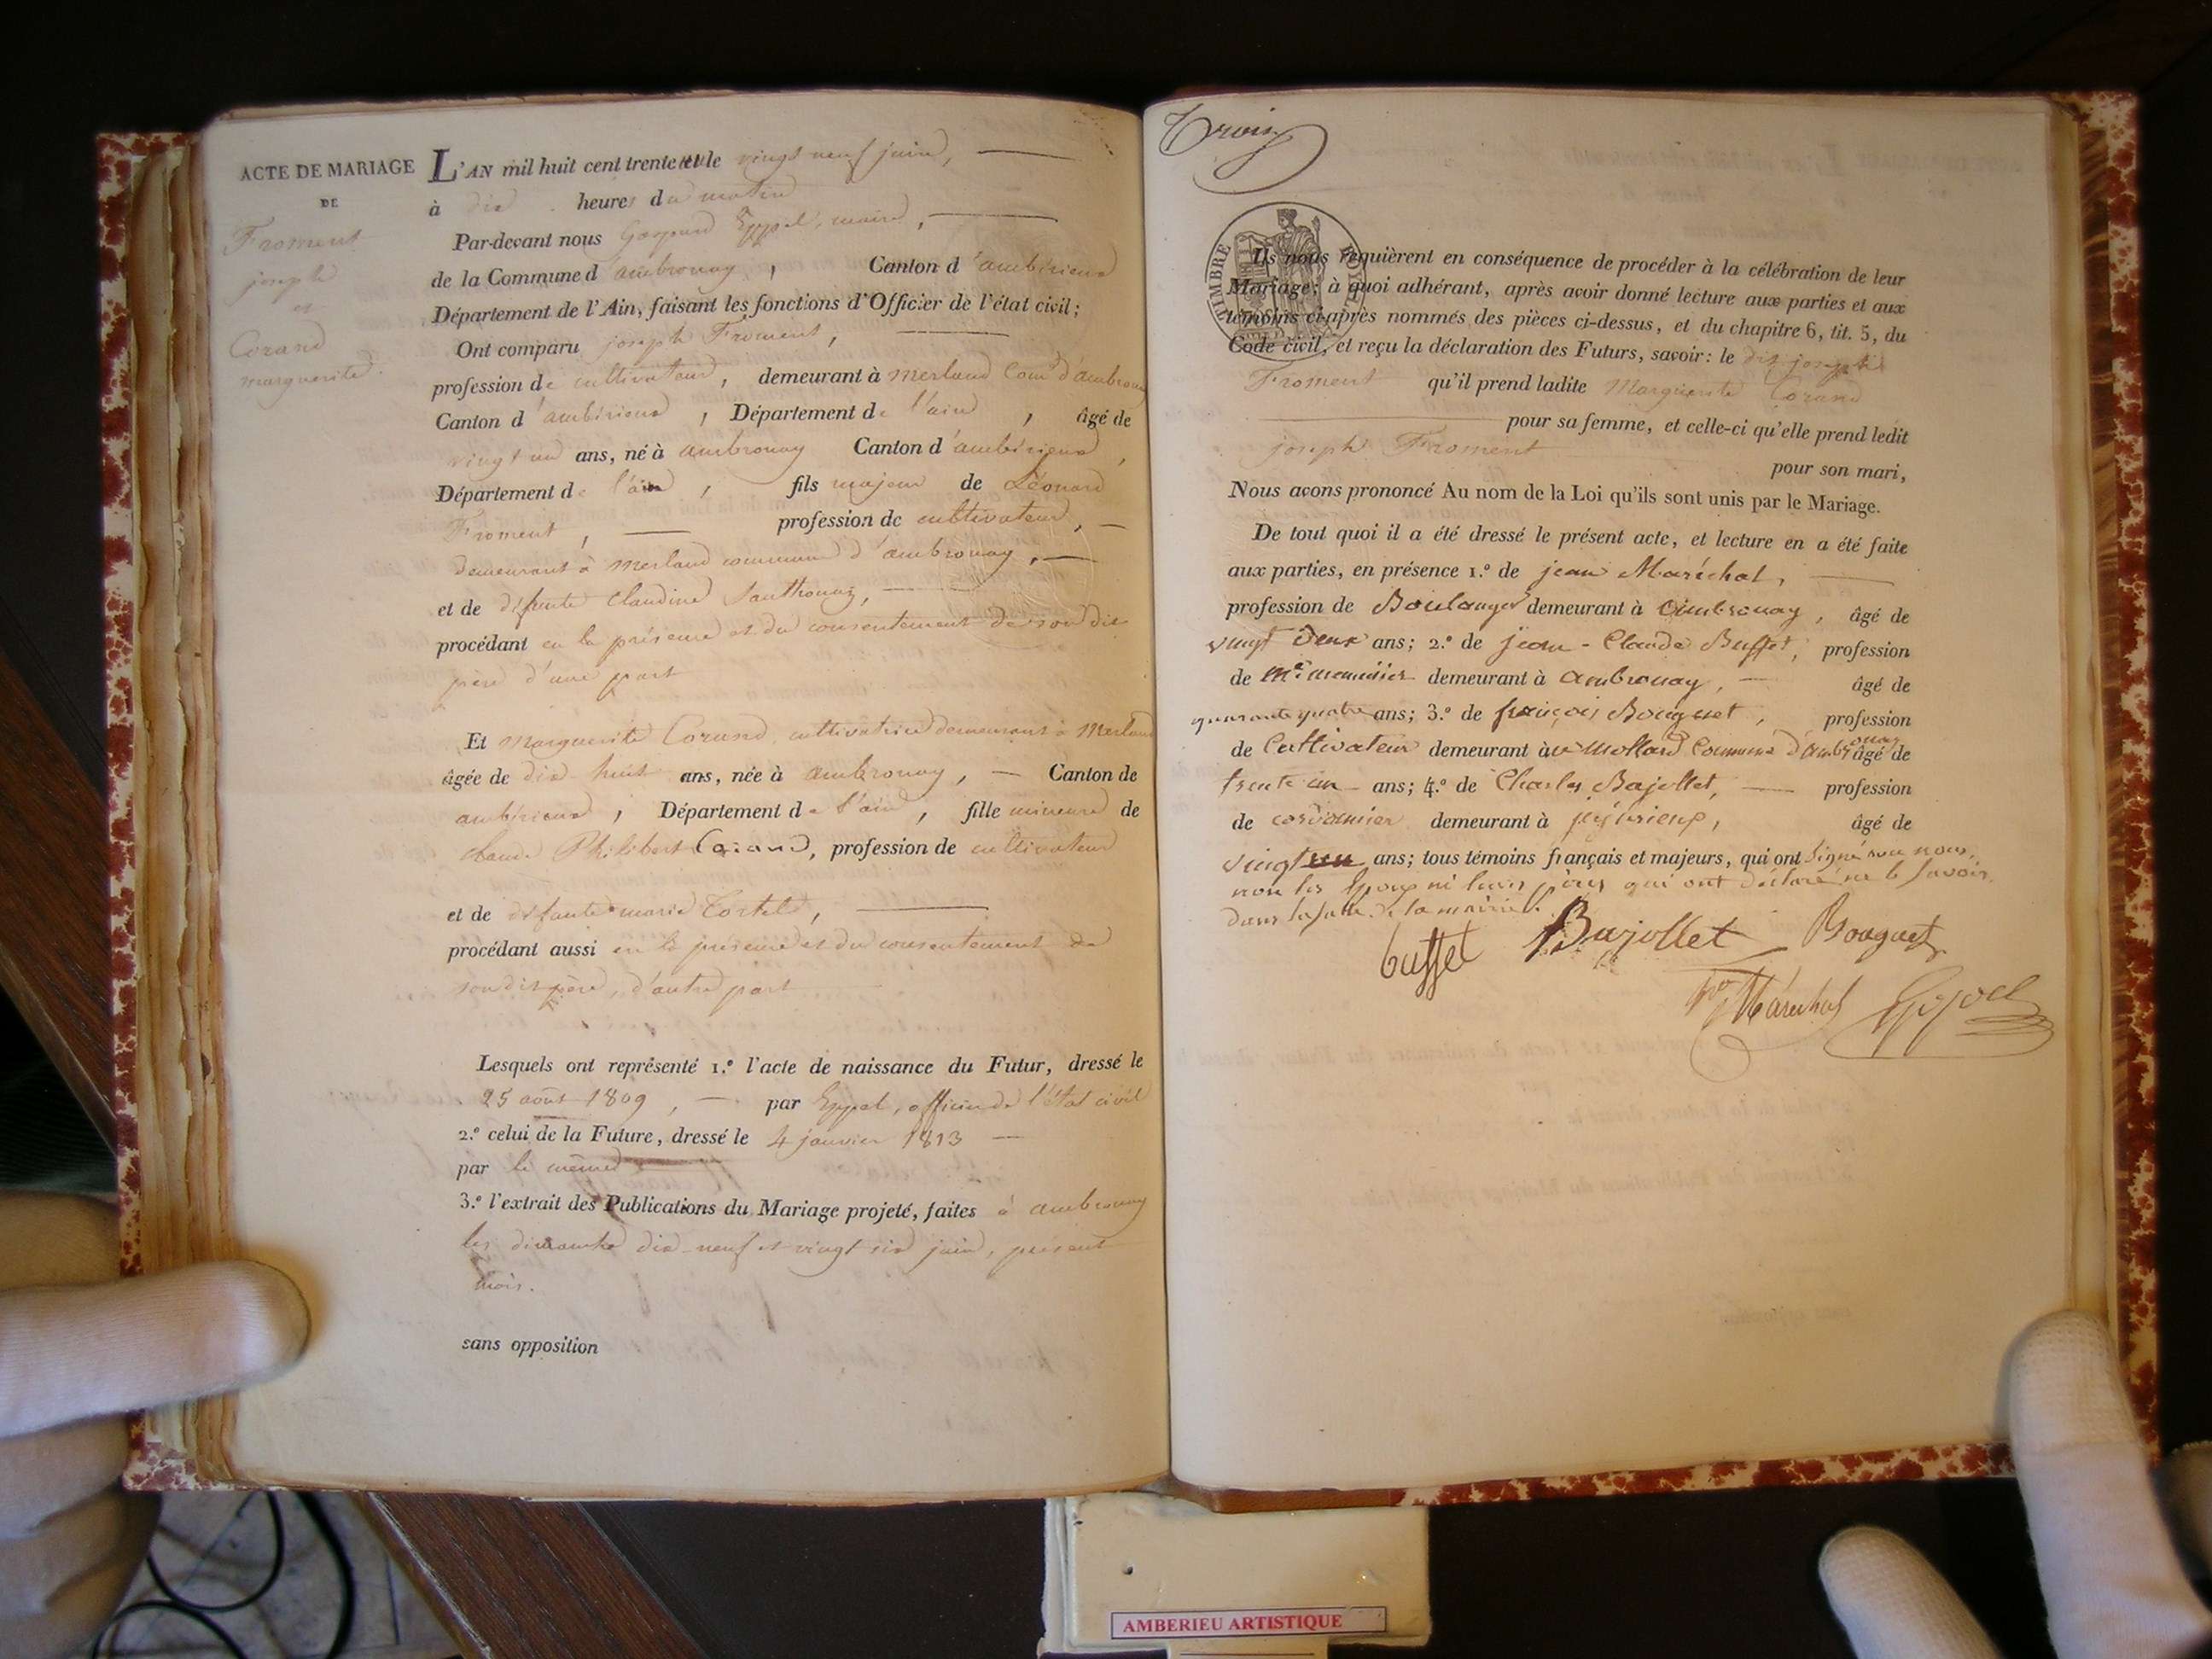 ACTE DE MARIAGE
DE
Froment
joseph
et
Corand
marguerite.
L'AN mil huit cent trente et un le vingt neuf juin,
à dix heures du matin
Par-devant nous Gaspard Eppel, maire,
de la Commune d'ambronay, Canton d'ambérieux
Département de l'Ain, faisant les fonctions d'Officier de l'état civil;
Ont comparu joseph Froment,
profession de cultivateur, demeurant à merland Com.e d'ambronay
Canton d'ambérieux, Département de l'ain, âgé de
vingt un ans, né à ambronay Canton d'ambérieux,
Département de l'ain, fils majeur de Léonard
Froment, profession de cultivateur,
demeurant à merland commune d'ambronay,
et de défunte Claudine Santhonay,
procédant en la présence et du consentement de son dit
père d'une part
Et marguerite Corand, cultivatrice demeurant à merland
âgée de dix huit ans, née à ambronay, Canton de
ambérieux, Département de l'ain, fille mineure de
Claude Philibert Corand, profession de cultivateur
et de défunte marie Tortel,
procédant aussi en la présence et du consentement de
son dit père, d'autre part
Lesquels ont représenté 1.º l'acte de naissance du Futur, dressé le
25 août 1809, par Eppel, officier de l'état civil
2.º celui de la Future, dressé le 4 janvier 1813
par le même
3.º l'extrait des Publications du Mariage projeté, faites à ambronay
les dimanche dix-neuf et vingt six juin, présent
mois.
sans opposition
Trois
TIMBRE ROYAL
Ils nous requièrent en conséquence de procéder à la célébration de leur
Mariage; à quoi adhérant, après avoir donné lecture aux parties et aux
témoins ci-après nommés des pièces ci-dessus, et du chapitre 6, tit. 5, du
Code civil, et reçu la déclaration des Futurs, savoir: le dit joseph
Froment qu'il prend ladite Marguerite Corand
pour sa femme, et celle-ci qu'elle prend ledit
joseph Froment
pour son mari,
Nous avons prononcé Au nom de la Loi qu'ils sont unis par le Mariage.
De tout quoi il a été dressé le présent acte, et lecture en a été faite
aux parties, en présence 1.º de jean Maréchal,
profession de Boulanger demeurant à Ambronay, âgé de
vingt Deux ans; 2.º de jean-Claude Buffet, profession
de M.e menuisier demeurant à Ambronay, âgé de
quarante quatre ans; 3.º de françois Bouguet, profession
de Cultivateur demeurant au Mollard Commune d'Ambronay âgé de
trente un ans; 4.º de Charles Bajollet, profession
de cordonnier demeurant à jujurieux, âgé de
vingt un ans; tous témoins français et majeurs, qui ont signé avec nous,
non les Epoux ni leurs pères qui ont déclaré ne le savoir.
Dans la salle de la mairie.
buffet Bajollet Bouguet
Maréchal Eppel
AMBERIEU ARTISTIQUE